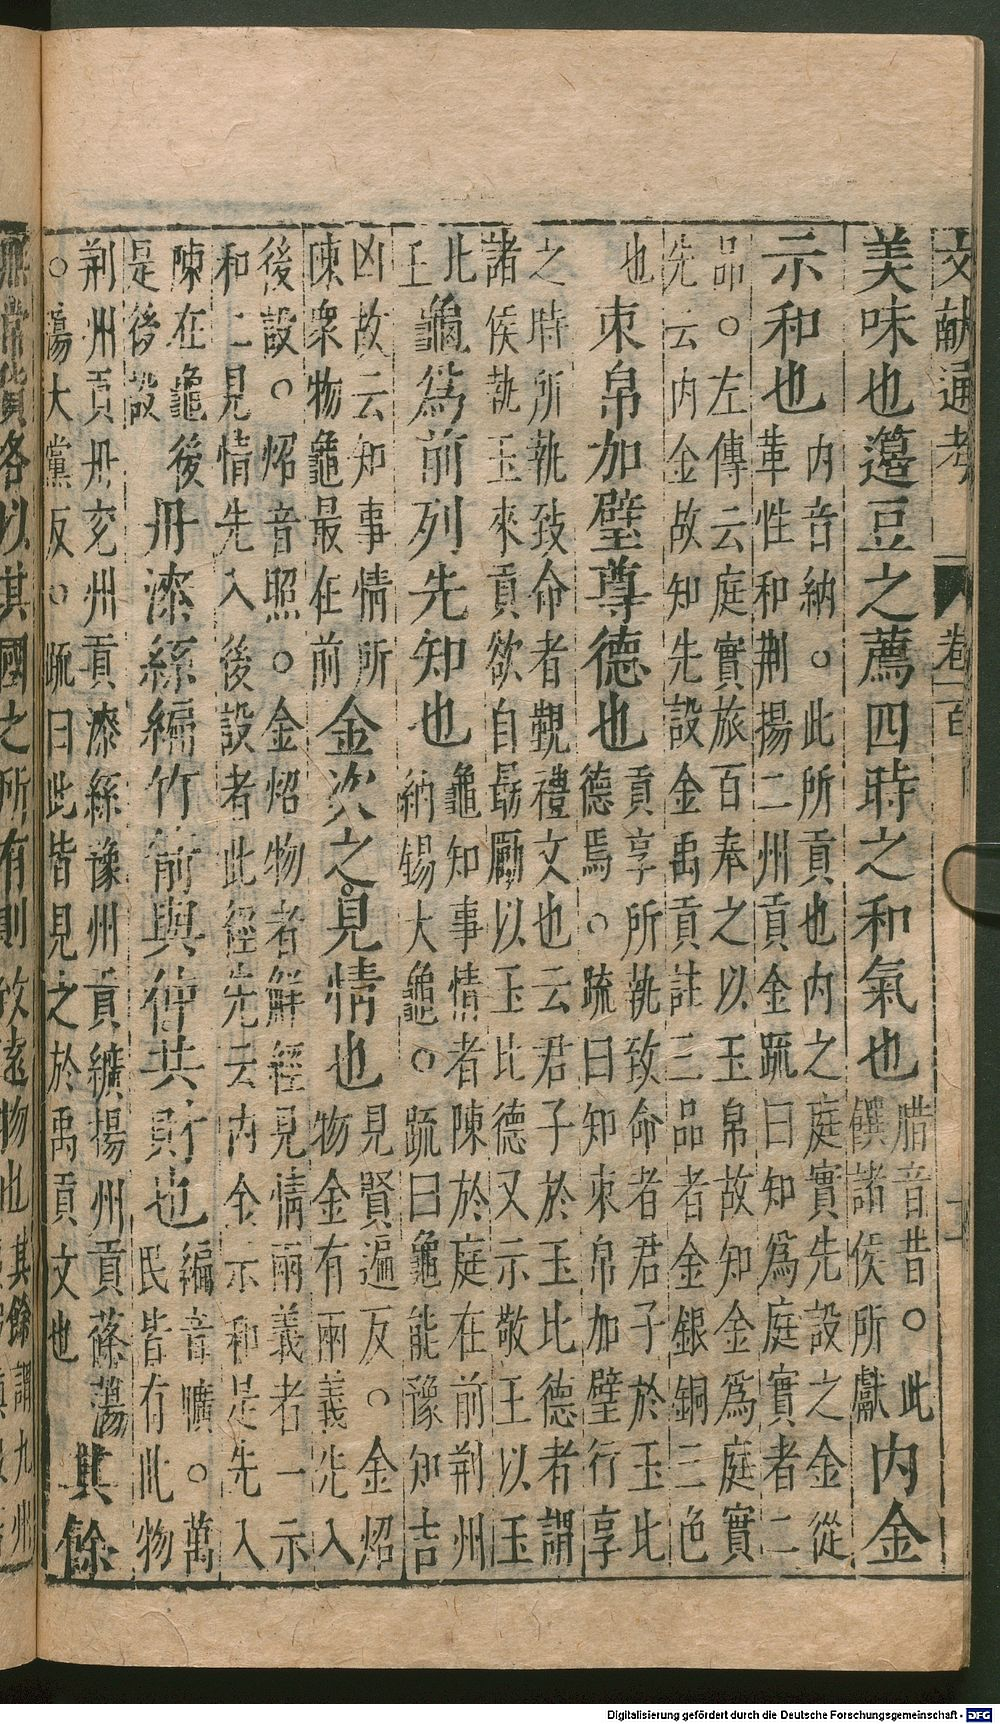 文獻通考　卷一百
美味也籩豆之薦四時之和氣也
腊音昔○此
饌諸侯所獻
内金
示和也
内音納○此所貢也内之庭實先設之金從
革性和荆揚二州貢金䟽曰知爲庭實者二
品○左傳云庭實旅百奉之以玉帛故知金爲庭實
先云内金故知先設金禹貢註三品者金銀銅三色
也
束帛加璧尊德也
貢享所執致命者君子於玉比
德焉○䟽曰知束帛加璧行享
之時所執致命者覲禮文也云君子於玉比德者謂
諸侯執玉來貢欲自勗勵以玉比德又示敬王以玉
比
王
龜爲前列先知也
龜知事情者陳於庭在前荆州
納錫大龜○䟽曰龜能豫知吉
凶故云知事情所
陳衆物龜最在前
金次之見情也
見賢遍反○金炤
物金有兩義先入
後設○炤音照○金炤物者解經見情兩義者一示
和二見情先入後設者此經先云内金示和是先入
陳在龜後
是後設
丹漆絲編竹箭與衆共財也
編音曠○萬
民皆有此物
荆州貢丹兖州貢漆絲豫州貢纊揚州貢篠蕩
○蕩大黨反○䟽曰此皆見之於禹貢文也
其餘
無常貨各以其國之所有則致遠物也
其餘謂九州
Digitalisierung gefördert durch die Deutsche Forschungsgemeinschaft - DFG